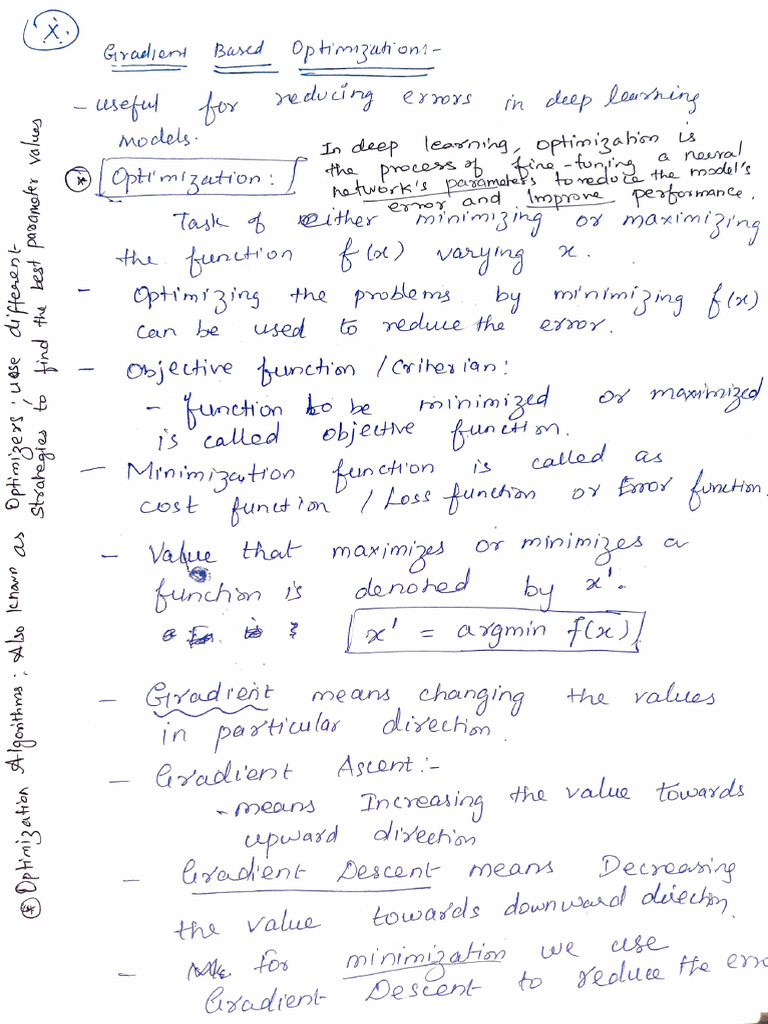 X.
Gradient Based Optimization:-
- useful for reducing errors in deep learning
models.
In deep learning, optimization is
the process of fine-tuning a neural
network's parameters to reduce the model's
error and Improve performance.
* Optimization:
Task of either minimizing or maximizing
the function f(x) varying x.
- Optimizing the problems by minimizing f(x)
can be used to reduce the error.
- Objective function / Criterian:
- function to be minimized or maximized
is called objective function.
- Minimization function is called as
cost function / Loss function or Error function.
- Value that maximizes or minimizes a
function is denoted by x'.
x' = argmin f(x)
- Gradient means changing the values
in particular direction.
- Gradient Ascent:-
- means Increasing the value towards
upward direction
- Gradient Descent means Decreasing
the value towards downward direction.
- for minimization we use
Gradient Descent to reduce the erro
* Optimization Algorithms: Also known as Optimizers; use different
strategies to find the best parameter values